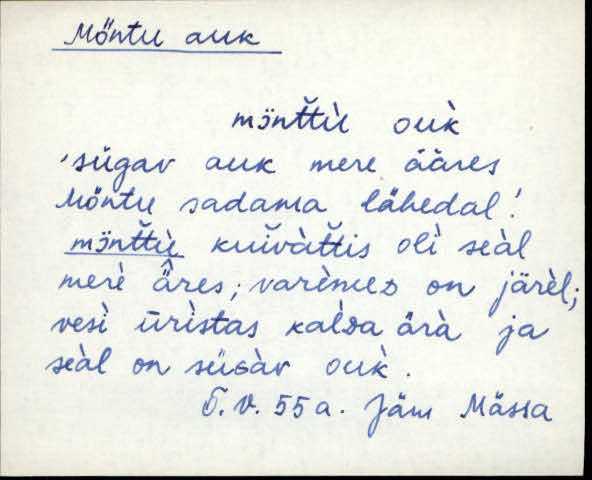 Möntu auk
mɔ̈nt̆t̆ù oùk̀
'sügav auk mere ääres
Möntu sadama lähedal!
mɔ̈nt̆t̆ù kuĭvàt̆t̆is olì seàl
merè ä̂res; varèmeᴅ on järèl;
vesì ūrìstas kalᴅa ärà ja
seàl on süɢàv oùk̀.
T.V. 55 a. Jäm Mässa